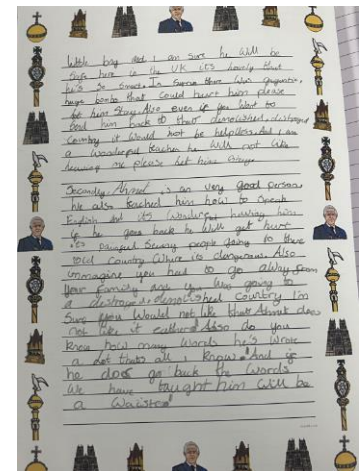 little boy and i am sure he will be
Safe here in the UK its lovely that
he's So Smart. In Syria there was gigantic,
huge bombs that Could hurt him please
let him Stay. Also even if you Want to
Send him back to that demolished, destroyed
Country it Would not be helpless. And I am
a Wonderful teacher he will not like
leaving me please let him stay.
Secondly, Ahmet is an very good person
We also teached him how to Speak
English and its Wonderful having him
if he goes back he will get hurt
its painful Seeing people going to there
old Country Where its dangerous. Also
immagine you had to go away from
Your family and you Was going to
a destroyed, demolished Country I'm
Sure you Would not like that Ahmet does
not like it either! Also do you
know how many Words he's wrote
a lot thats all i know. And if
he does go back the Words
We have taught him Will be
a Waisted